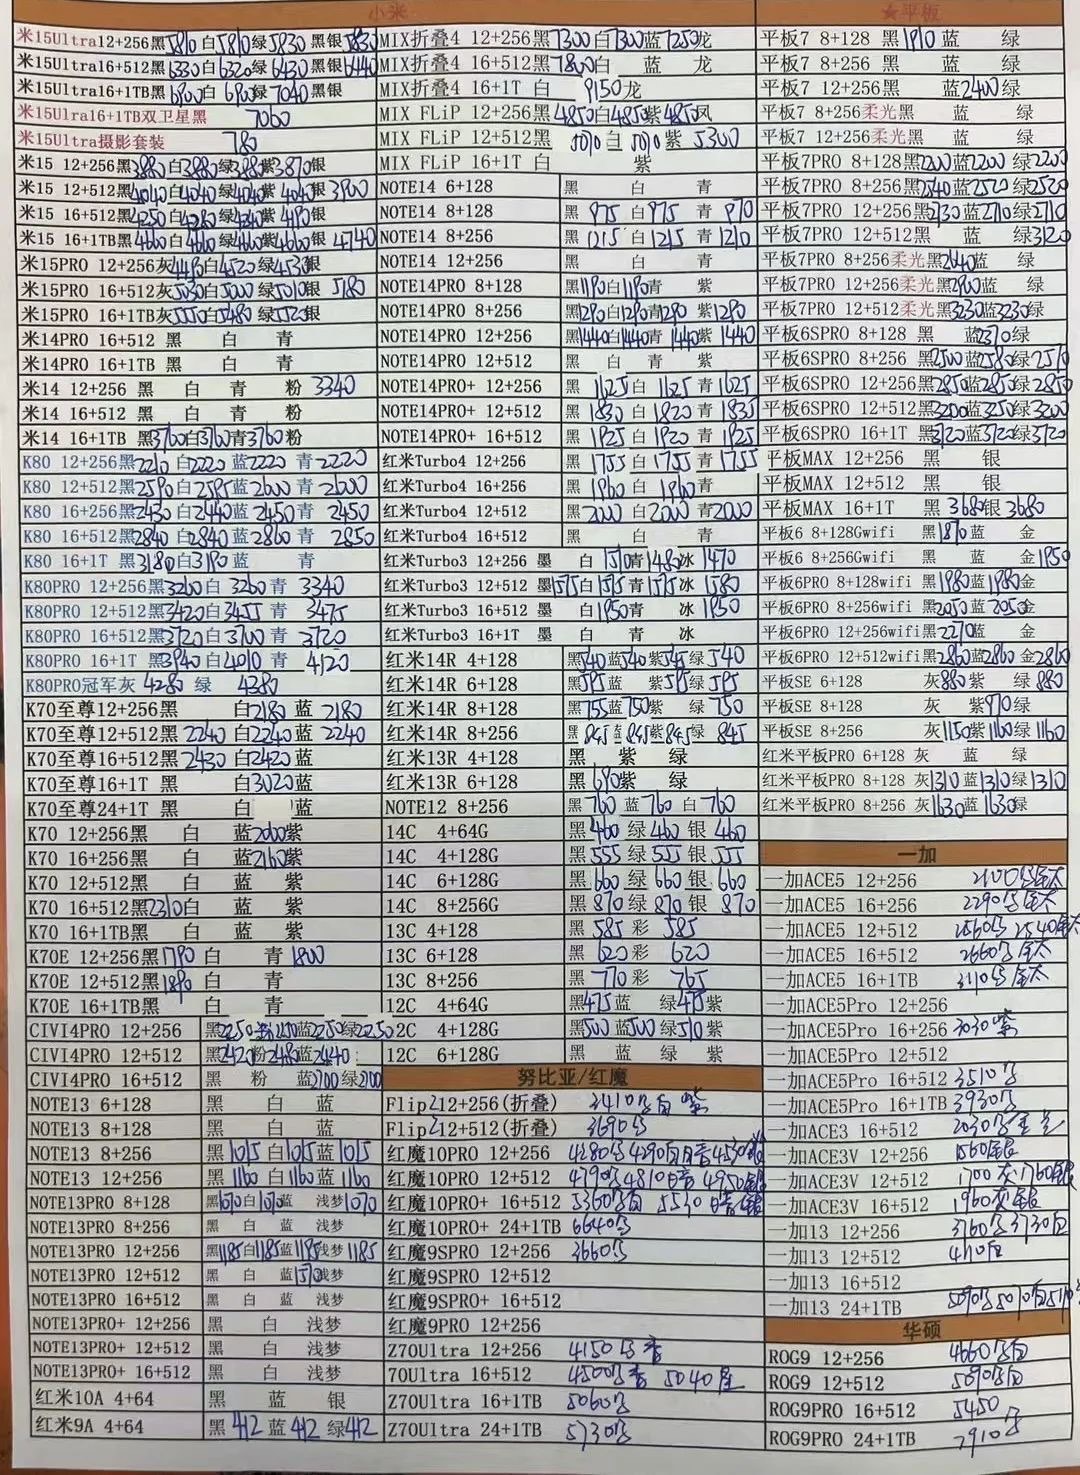 小米
米15Ultra12+256黑5810白5810绿5830黑银5830
米15Ultra16+512黑6330白6320绿6430黑银6440
米15Ultra16+1TB黑6900白6900绿7040黑银
米15Ulra16+1TB双卫星黑 7060
米15Ultra摄影套装 780
米15 12+256黑3880白3880绿3880紫3870银
米15 12+512黑4040白4040绿4040紫4040银3900
米15 16+512黑4250白4280绿4240紫4190银
米15 16+1TB黑4660白4660绿4660紫4660银4740
米15PRO 12+256灰4490白4520绿4530银
米15PRO 16+512灰5030白5000绿5010银 5180
米15PRO 16+1TB灰5550白5480绿5520银
米14PRO 16+512 黑 白 青
米14PRO 16+1TB 黑 白 青
米14 12+256 黑 白 青 粉 3340
米14 16+512 黑 白 青 粉
米14 16+1TB 黑3760白3760青3760粉
K80 12+256黑2210 白2220 蓝2220 青2220
K80 12+512黑2590白2595蓝2600 青2600
K80 16+256黑2430 白2440蓝2450 青2450
K80 16+512黑2840白2840蓝2860 青2850
K80 16+1T 黑3180白3190蓝 青
K80PRO 12+256黑3260白 3260青 3340
K80PRO 12+512黑3420白3455 青 3475
K80PRO 16+512黑3720白3700 青 3720
K80PRO 16+1T 黑3940白4010 青 4120
K80PRO冠军灰 4280 绿 4280
K70至尊12+256黑 白2180蓝 2180
K70至尊12+512黑 2240白2240蓝 2240
K70至尊16+512黑 2430白2420蓝
K70至尊16+1T 黑 白3020蓝
K70至尊24+1T 黑 白 蓝
K70 12+256黑 白 蓝2000紫
K70 16+256黑 白 蓝2160紫
K70 12+512黑 白 蓝 紫
K70 16+512黑2310白 蓝 紫
K70 16+1TB黑 白 蓝 紫
K70E 12+256黑1790 白 青1800
K70E 12+512黑1890白 青
K70E 16+1TB黑 白 青
CIVI4PRO 12+256 黑2250粉2250蓝2250绿2250
CIVI4PRO 12+512 黑2420粉2480蓝2440
CIVI4PRO 16+512 黑 粉 蓝2700绿2700
NOTE13 6+128 黑 白 蓝
NOTE13 8+128 黑 白 蓝
NOTE13 8+256 黑1015白1015蓝1015
NOTE13 12+256 黑1160白1160蓝1160
NOTE13PRO 8+128 黑1070白1070蓝 浅梦1070
NOTE13PRO 8+256 黑 白 蓝 浅梦
NOTE13PRO 12+256 黑1185白1185蓝1185浅梦1185
NOTE13PRO 12+512 黑 白 蓝1570浅梦
NOTE13PRO 16+512 黑 白 蓝 浅梦
NOTE13PRO+ 12+256 黑 白 浅梦
NOTE13PRO+ 12+512 黑 白 浅梦
NOTE13PRO+ 16+512 黑 白 浅梦
红米10A 4+64 黑 蓝 银
红米9A 4+64 黑412蓝412绿412
MIX折叠4 12+256黑7300白7300蓝7250龙
MIX折叠4 16+512黑7800白 蓝 龙
MIX折叠4 16+1T 白 9150龙
MIX FLiP 12+256黑4850白4850紫4850凤
MIX FLiP 12+512黑 5090白 5090紫 5300
MIX FLiP 16+1T 白 紫
NOTE14 6+128 黑 白 青
NOTE14 8+128 黑 975白975 青970
NOTE14 8+256 黑1215白1215青1210
NOTE14 12+256 黑 白 青
NOTE14PRO 8+128 黑1190白1190青 紫
NOTE14PRO 8+256 黑1290白1290青1290 紫1290
NOTE14PRO 12+256 黑1440白1440青1440紫1440
NOTE14PRO 12+512 黑 白 青 紫
NOTE14PRO+ 12+256 黑1625白1625青1625
NOTE14PRO+ 12+512 黑1830白1820青1835
NOTE14PRO+ 16+512 黑1925白1920青1925
红米Turbo4 12+256 黑1755白1755青1755
红米Turbo4 16+256 黑1960白1960青
红米Turbo4 12+512 黑2000白2000青2000
红米Turbo4 16+512 黑 白 青
红米Turbo3 12+256 墨 白1510青1480冰1470
红米Turbo3 12+512 墨1575白1575青1575冰1580
红米Turbo3 16+512 墨 白1950青 冰1950
红米Turbo3 16+1T 墨 白 青 冰
红米14R 4+128 黑540蓝540紫545绿540
红米14R 6+128 黑585蓝 紫585绿585
红米14R 8+128 黑755蓝750紫 绿750
红米14R 8+256 黑845蓝845紫845绿845
红米13R 4+128 黑 紫 绿
红米13R 6+128 黑690紫 绿
NOTE12 8+256 黑760蓝760白760
14C 4+64G 黑460绿460银460
14C 4+128G 黑555绿555银555
14C 6+128G 黑660绿660银660
14C 8+256G 黑870绿870银870
13C 4+128 黑585彩585
13C 6+128 黑620彩620
13C 8+256 黑770彩765
12C 4+64G 黑475蓝 绿475紫
2C 4+128G 黑500蓝500绿510紫
12C 6+128G 黑 蓝 绿 紫
努比亚/红魔
Flip212+256(折叠) 3410 白 紫
Flip212+512(折叠) 3690
红魔10PRO 12+256
红魔10PRO 12+512
红魔10PRO+ 16+512
红魔10PRO+ 24+1TB 6640
红魔9SPRO 12+256 3660
红魔9SPRO 12+512
红魔9SPRO+ 16+512
红魔9PRO 12+256
Z70Ultra 12+256 4150
70Ultra 16+512 4500 5040星
Z70Ultra 16+1TB 5060
Z70Ultra 24+1TB 5730
★平板
平板7 8+128 黑1910蓝 绿
平板7 8+256 黑 蓝 绿
平板7 12+256 黑 蓝2400绿
平板7 8+256柔光黑 蓝 绿
平板7 12+256柔光黑 蓝 绿
平板7PRO 8+128黑2200蓝2200绿2200
平板7PRO 8+256黑2540蓝2520绿2520
平板7PRO 12+256黑2730蓝2710绿2710
平板7PRO 12+512黑 蓝 绿3120
平板7PRO 8+256柔光黑2640蓝 绿
平板7PRO 12+256柔光黑2900蓝 绿
平板7PRO 12+512柔光黑3230蓝3230绿
平板6SPRO 8+128 黑 蓝2370绿
平板6SPRO 8+256 黑2500蓝2580绿2570
平板6SPRO 12+256黑2850蓝2850绿2850
平板6SPRO 12+512黑3200蓝3250绿3200
平板6SPRO 16+1T 黑3720蓝3720绿3720
平板MAX 12+256 黑 银
平板MAX 12+512 黑 银
平板MAX 16+1T 黑3680银3680
平板6 8+128Gwifi 黑1870蓝 金
平板6 8+256Gwifi 黑 蓝 金1950
平板6PRO 8+128wifi 黑1980蓝1980金
平板6PRO 8+256wifi 黑2050蓝2050金
平板6PRO 12+256wifi黑2270蓝 金
平板6PRO 12+512wifi黑2860蓝2860金2860
平板SE 6+128 灰880紫 绿880
平板SE 8+128 灰 紫970绿
平板SE 8+256 灰1150紫1160绿1160
红米平板PRO 6+128 灰 蓝 绿
红米平板PRO 8+128 灰1310蓝1310绿1310
红米平板PRO 8+256 灰1630蓝1630绿
一加
一加ACE5 12+256 2100
一加ACE5 16+256 2290
一加ACE5 12+512 2560 2540
一加ACE5 16+512 2660
一加ACE5 16+1TB 3110
一加ACE5Pro 12+256
一加ACE5Pro 16+256 3030紫
一加ACE5Pro 12+512
一加ACE5Pro 16+512 3510
一加ACE5Pro 16+1TB 3930
一加ACE3 16+512 2030
一加ACE3V 12+256 1560
一加ACE3V 12+512 1700灰1760
一加ACE3V 16+512 1960灰
一加13 12+256 3760 3730白
一加13 12+512 4110白
一加13 16+512
一加13 24+1TB
华硕
ROG9 12+256 4660
ROG9 12+512 5090
ROG9PRO 16+512 5450
ROG9PRO 24+1TB 7910